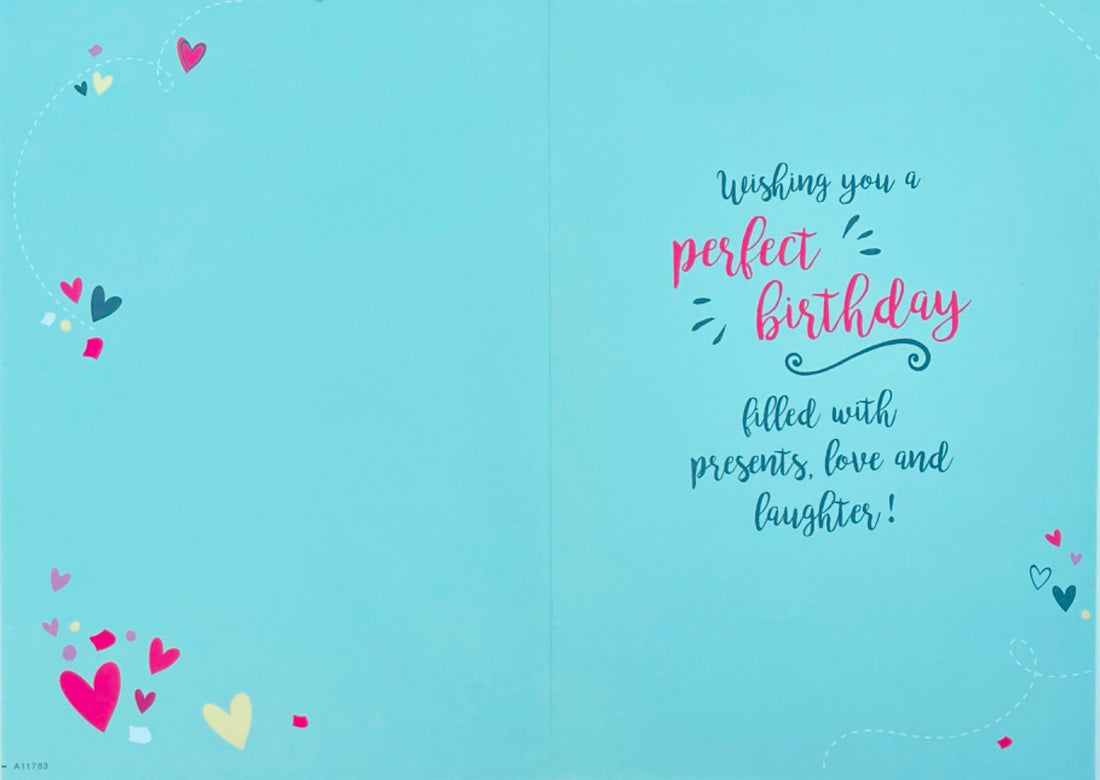 Wishing you a
perfect
birthday
filled with
presents, love and
laughter!
A11783